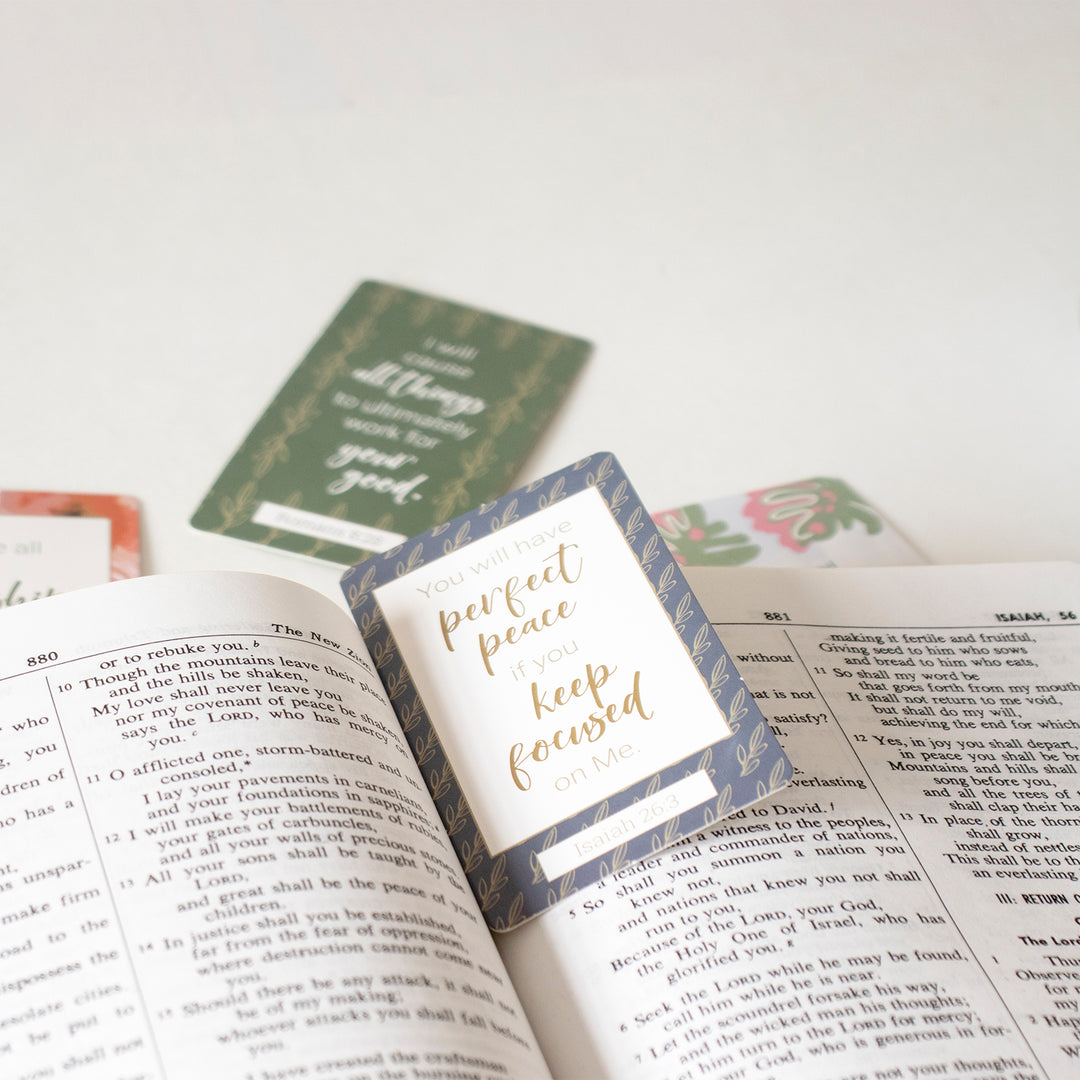 I will
cause
all things
to ultimately
work for
your
good.
Romans 8:28
e all
You will have
perfect
peace
if you
keep
focused
on Me.
Isaiah 26:3
880
The New Zion
who
you
dren of
ho has a
ns unspar-
make firm
oad to the
ispossess the
esolate cities.
be put to
you shall not
or to rebuke you. b
10 Though the mountains leave their place
and the hills be shaken,
My love shall never leave you
nor my covenant of peace be shaken,
says the LORD, who has mercy on
you. c
11 O afflicted one, storm-battered and un-
consoled,*
I lay your pavements in carnelians,
and your foundations in sapphires;
12 I will make your battlements of rubies,
your gates of carbuncles,
and all your walls of precious stones.
13 All your sons shall be taught by the
LORD,
and great shall be the peace of your
children.
14 In justice shall you be established,
far from the fear of oppression,
where destruction cannot come near
you.
15 Should there be any attack, it shall not
be of my making;
whoever attacks you shall fall before
you.
have created the craftsman
881
ISAIAH, 56
without
hat is not
satisfy?
ed to David. f
a witness to the peoples,
a leader and commander of nations,
5 So shall you summon a nation you
knew not,
and nations that knew you not shall
run to you,
Because of the LORD, your God,
the Holy One of Israel, who has
glorified you. g
6 Seek the LORD while he may be found,
call him while he is near.
7 Let the scoundrel forsake his way,
and the wicked man his thoughts;
Let him turn to the LORD for mercy;
our God, who is generous in for-
are not your thoughts,
making it fertile and fruitful,
Giving seed to him who sows
and bread to him who eats,
11 So shall my word be
that goes forth from my mouth
It shall not return to me void,
but shall do my will,
achieving the end for which
12 Yes, in joy you shall depart,
in peace you shall be br
Mountains and hills shall
song before you,
and all the trees of
shall clap their ha
13 In place of the thorn
shall grow,
instead of nettles
This shall be to th
an everlasting
III: RETURN O
The Lord
1 Thu
Observe
for m
my
2 Hap